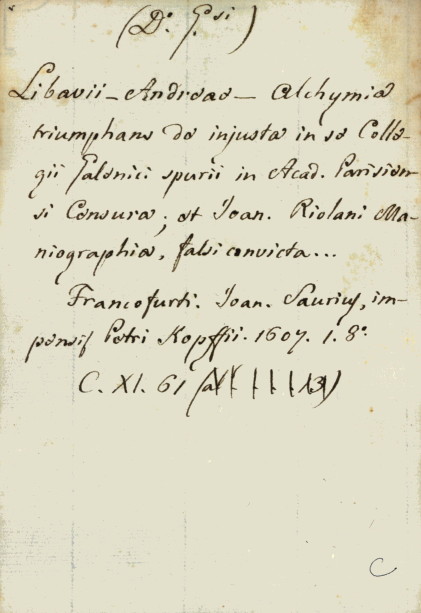 (D.s G.si)
Libavii - Andreae - Alchymia
triumphans de injusta in se Colle-
gii Galenici spurii in Acad. Parisien-
si Censura; et Ioan. Riolani Ma-
niographia, falsi convicta...
Francofurti. Ioan. Saurius, im-
pensis Petri Kopffii. 1607. 1. 8.°
C. XI. 61
C